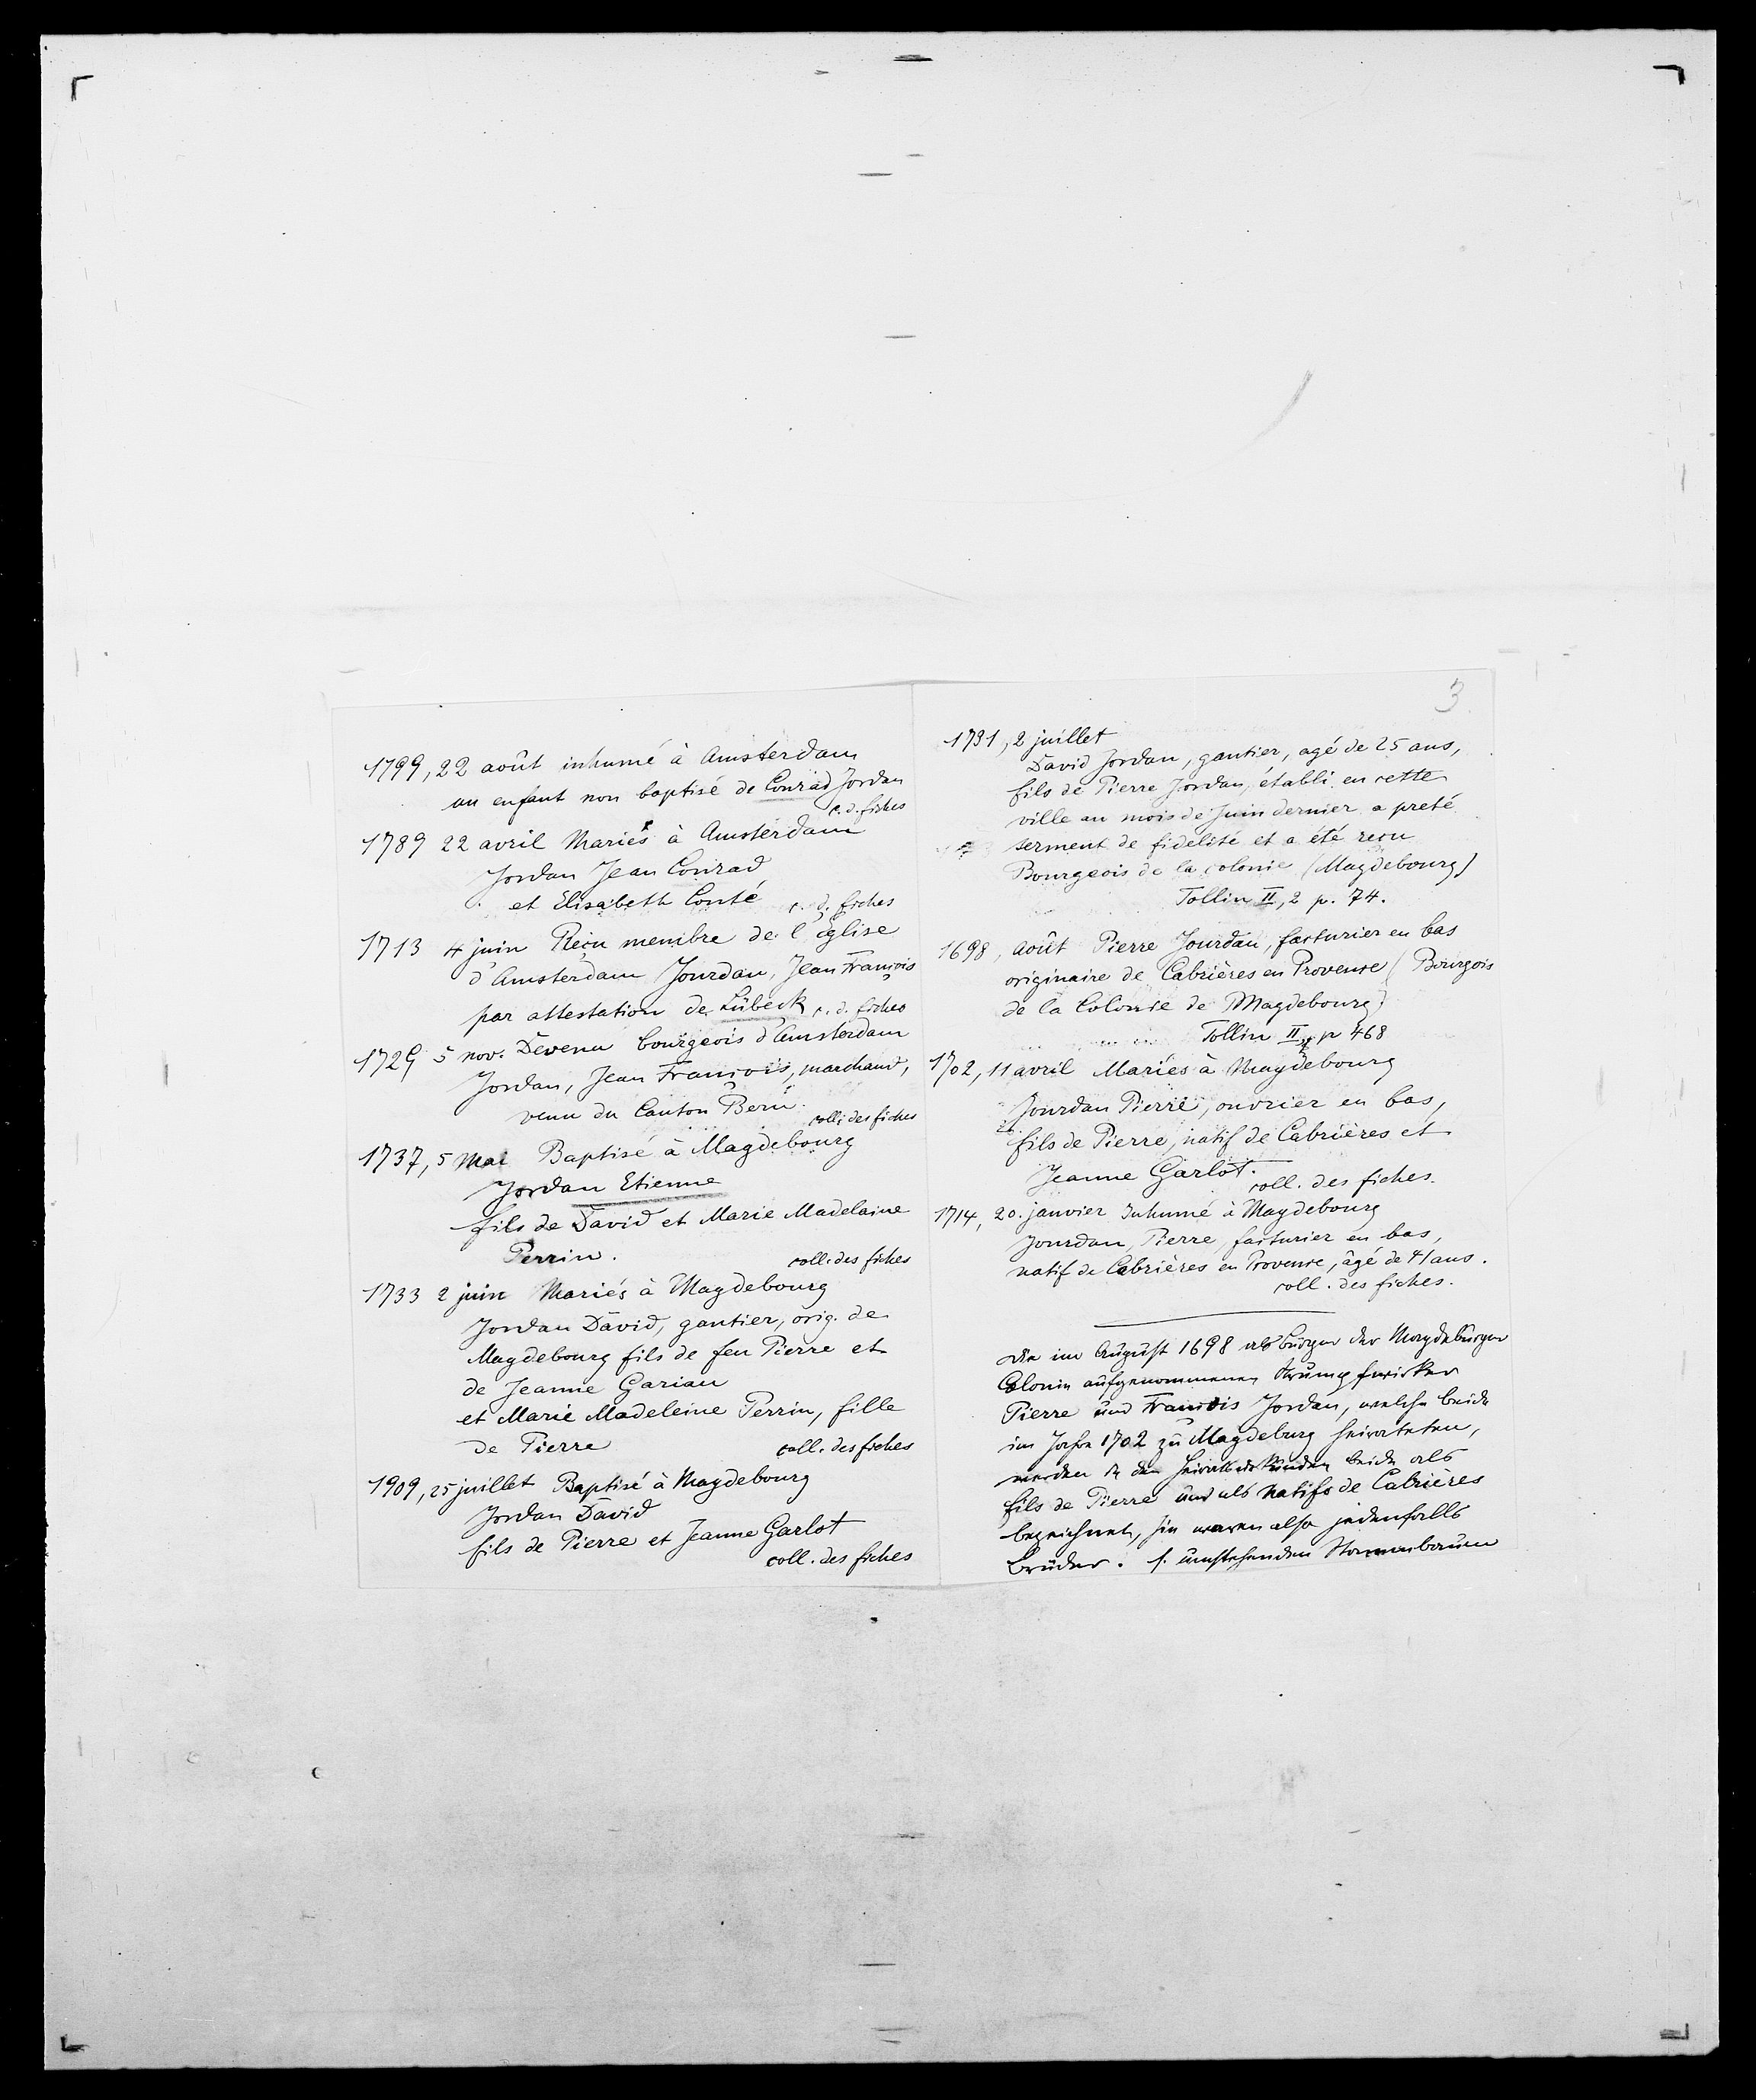 1799, 22 août inhumé à Amsterdam
un enfant non baptisé de Conrad Jordan
c. d. fiches
1789 22 avril Mariés à Amsterdam
Jordan Jean Conrad
et Elisabeth Conté c. d. fiches
1713 4 juin Reçu membre de l'église
d'Amsterdam Jourdan, Jean François
par attestation de Lübeck c. d. fiches
1729 5 nov. Devenu bourgeois d'Amsterdam
Jordan, Jean François, marchand,
venu du Canton Bern.
coll. des fiches
1737, 5 Mai Baptisé à Magdebourg
Jordan Etienne
fils de David et Marie Madelaine
Perrin. coll. des fiches
1733 2 juin Mariés à Magdebourg
Jordan David, gantier, orig. de
Magdebourg fils de feu Pierre et
de Jeanne Garian
et Marie Madeleine Perrin, fille
de Pierre coll. des fiches
1909, 25 juillet Baptisé à Magdebourg
Jordan David
fils de Pierre et Jeanne Garlot
coll. des fiches
3
1731, 2 juillet
David Jordan, gantier, agé de 25 ans,
fils de Pierre Jordan, établi en cette
ville au mois de Juin dernier a preté
serment de fidelité et a été reçu
Bourgeois de la colonie (Magdebourg)
Tollin II, 2 p. 74.
1698, août Pierre Jourdan, facturier en bas
originaire de Cabrières en Provence (Bourgois
de la Colonie de Magdebourg)
Tollin II, p 468
1702, 11 avril Mariés à Magdebourg
Jourdan Pierre, ouvrier en bas,
fils de Pierre, natif de Cabrières et
Jeanne Garlot.
coll. des fiches.
1714, 20. janvier Inhumé à Magdebourg
Jourdan, Pierre, facturier en bas,
natif de Cabrières en Provence, âgé de 41 ans.
coll. des fiches.
Die im August 1698 als Bürger der Magdeburger
Colonie aufgenommenen Strumpfwirker
Pierre und François Jordan, welche beide
im Jahre 1702 zu Magdeburg heirateten,
werden in den Heiratsurkunden beide als
fils de Pierre und als natifs de Cabrières
bezeichnet, sie waren also jedenfalls
Brüder. s. umstehenden Stammbaum